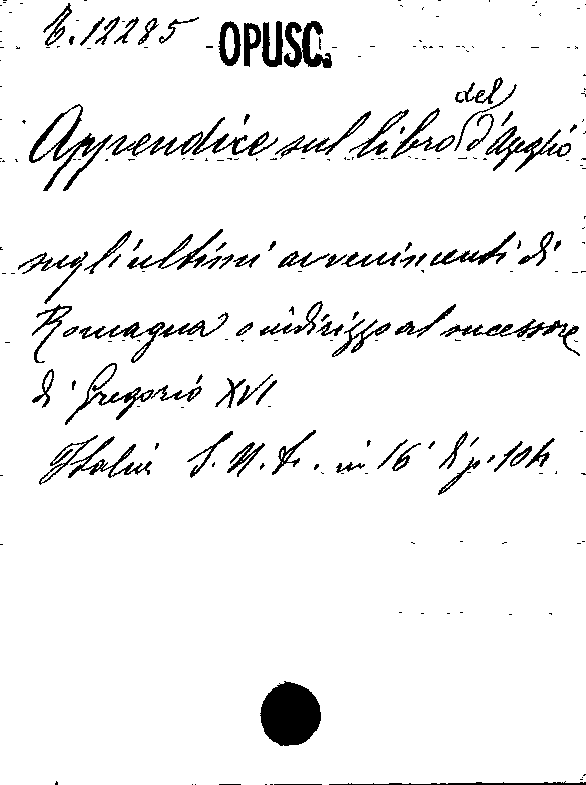 B.12285 OPUSC.
Appendice sul libro del d'Azeglio
sugli ultimi avvenimenti di
Romagna o indirizzo al successore
di Gregorio XVI
Italia S.N.T. in 16° di p. 104